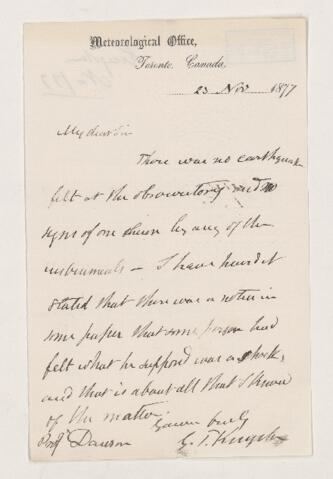 Meteorological Office,
Toronto, Canada,
23 Nov 1877
My dear Sir
There was no earthquake
felt at the observatory and no
signs of one shewn by any of the
instruments – I have heard it
stated that there was a notice in
some paper that some person had
felt what he supposed was a shock,
and that is about all that I know
of the matter
Yours truly
Prof Dawson
G. T. Kingston